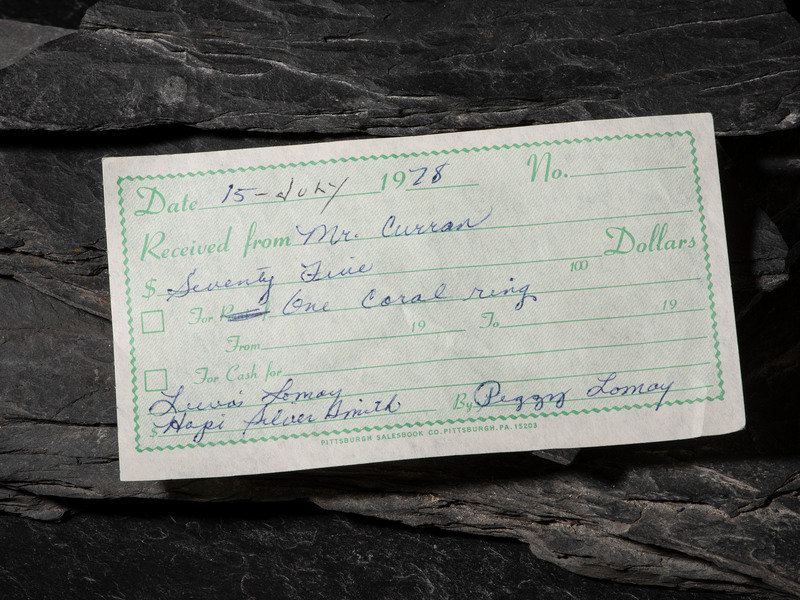 Date 15-July 1978 No.
Received from Mr. Curran
$ Seventy Five 100 Dollars
For One Coral ring
From 19 To 19
For Cash for
Lomay
$ Hopi Silver Smith By Peggy Lomay
PITTSBURGH SALESBOOK CO. PITTSBURGH, PA. 15203